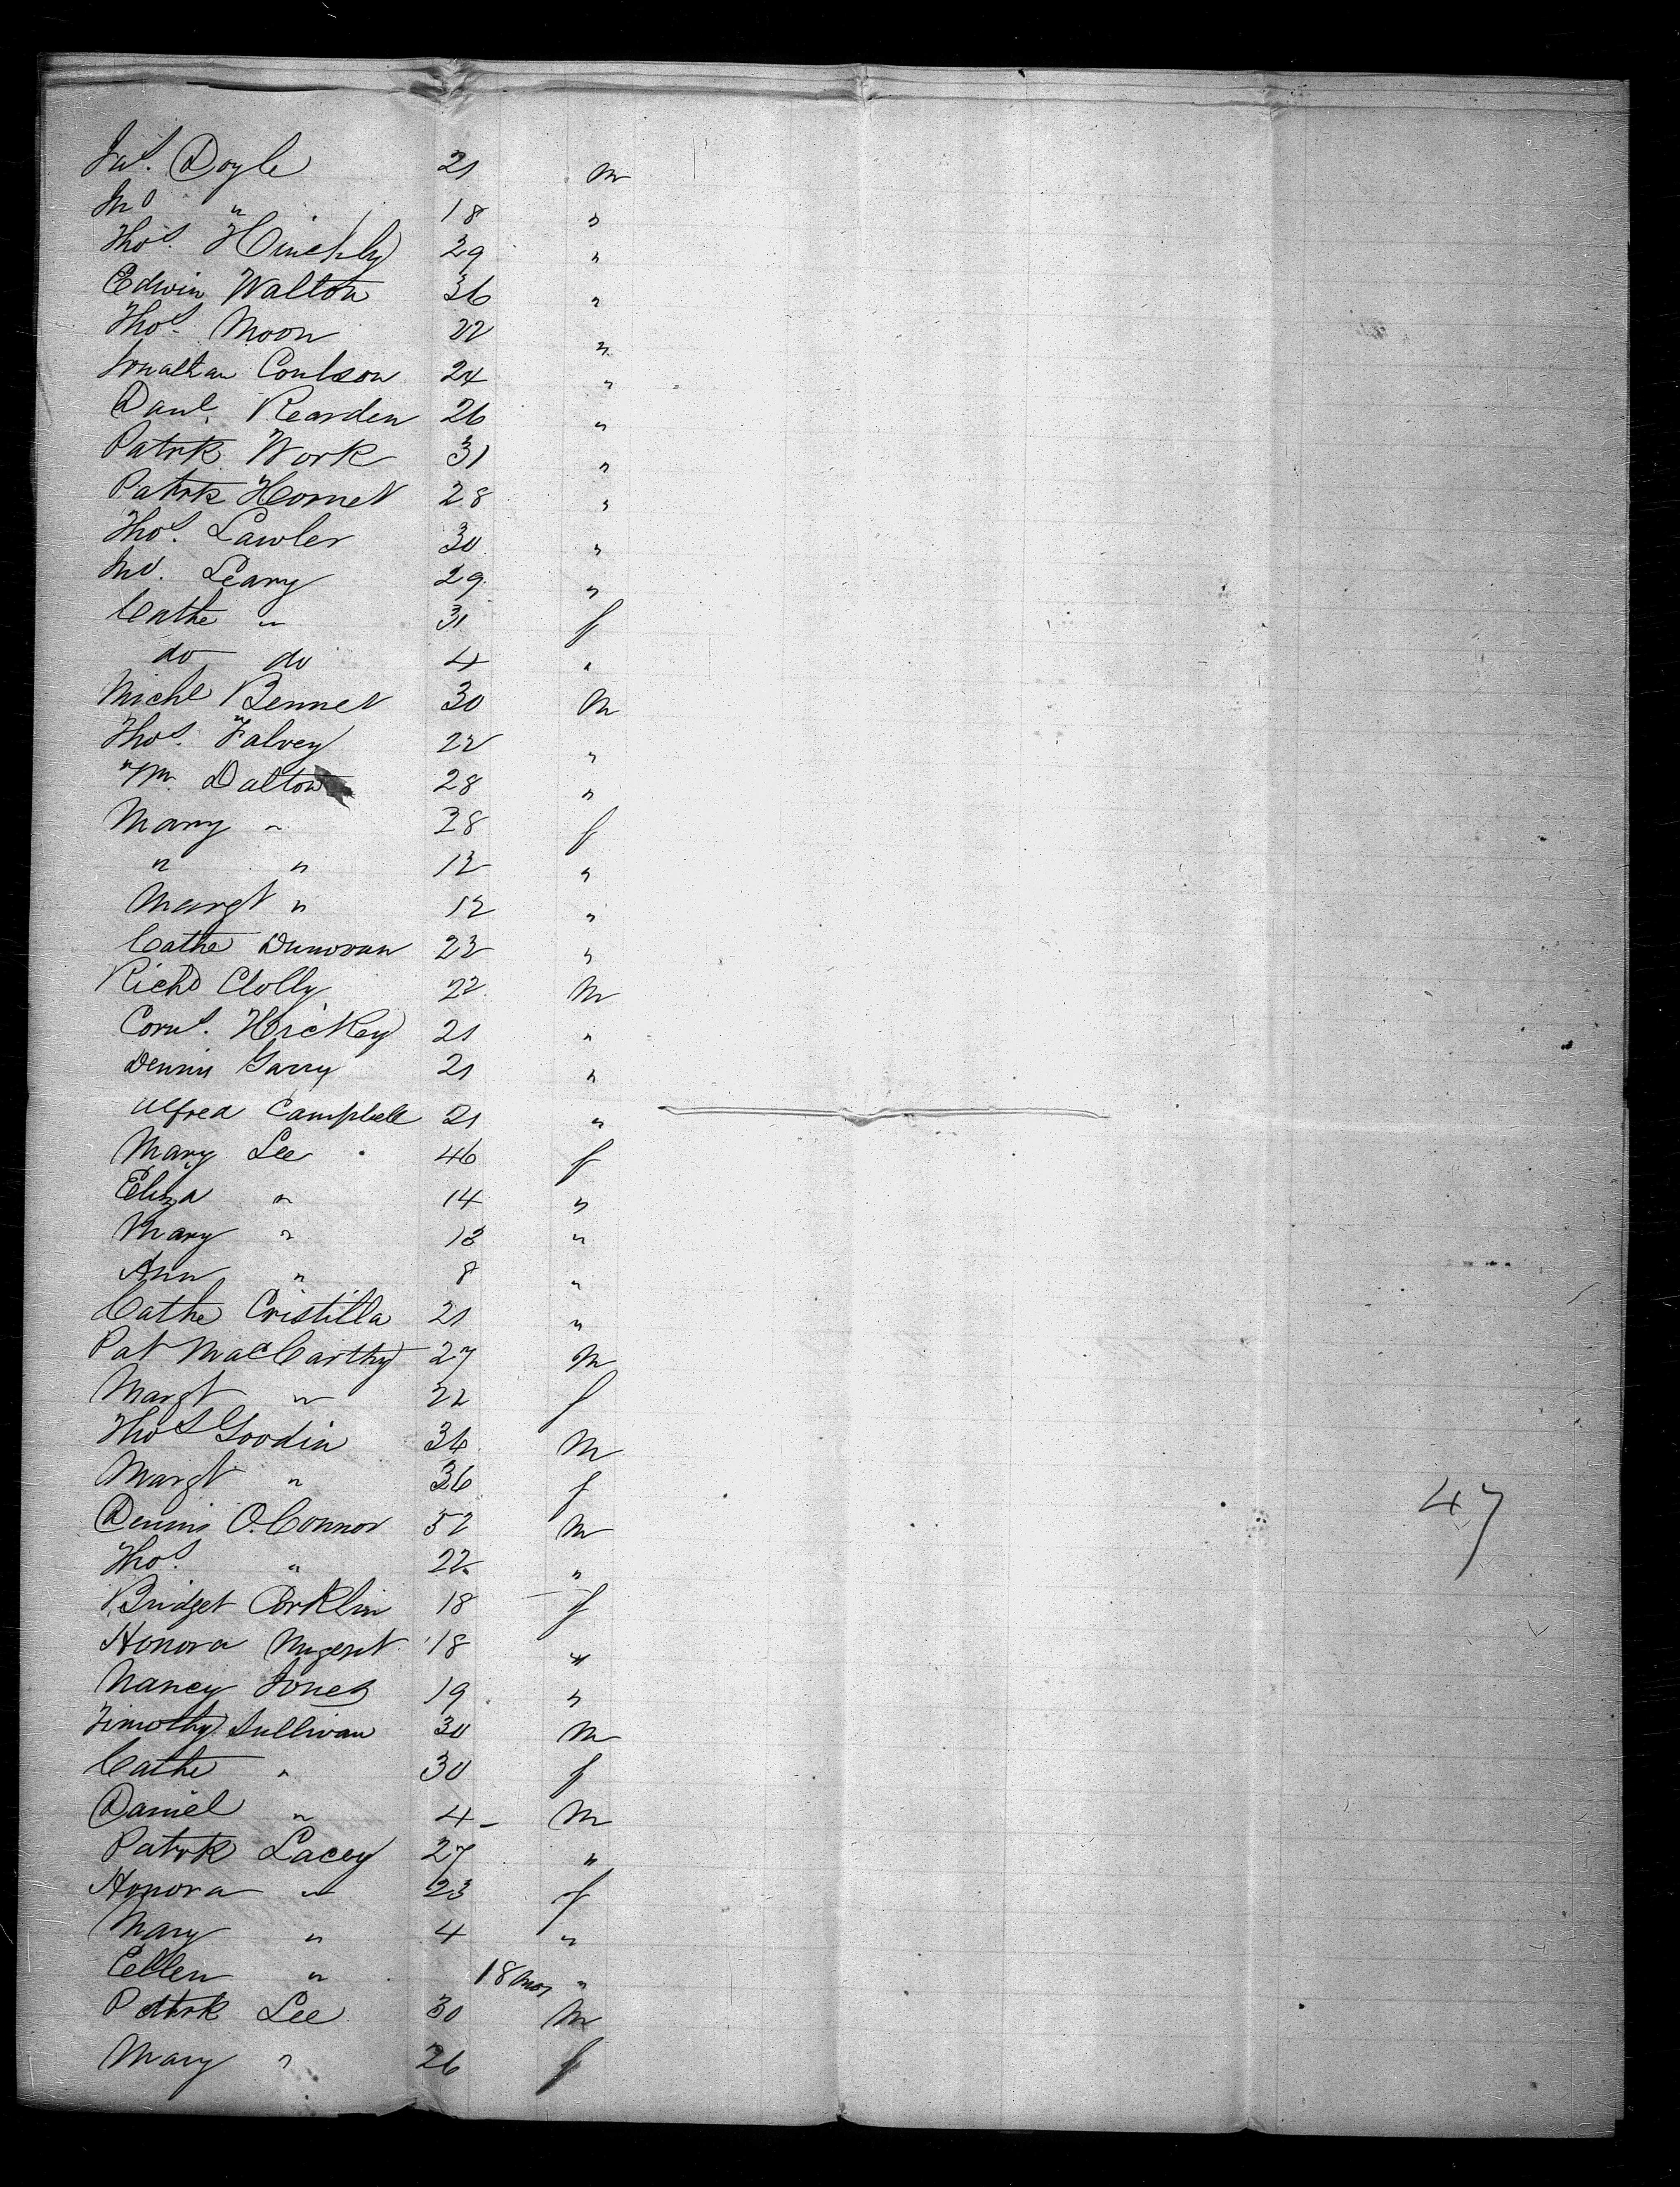 Jas. Doyle 21 m
Jno " 18 "
Thos. Hinchly 29 "
Edwin Walton 36 "
Thos. Moon 22 "
Jonathan Coulson 24 "
Danl. Rearden 26 "
Patrk Work 31 "
Patrk Hornet 28 "
Thos. Lawler 30 "
Jno. Leary 29 "
Cathe " 31 f
do do 4 "
Michl Bennet 30 m
Thos. Falvey 22 "
Wm. Dalton 28 "
Mary " 28 f
" " 12 "
Margt " 12 "
Cathe Dunovan 22 "
Richd Clolly 22 m
Corns. Hickey 21 "
Dennis Garry 21 "
Alfred Campbell 21 "
Mary Lee 46 f
Eliza " 14 "
Mary " 13 "
Ann " 8 "
Cathe Cristilla 21 "
Pat MacCarthy 27 m
Margt " 22 f
Thos Goodin 34 m
Margt " 36 f
Dennis O.Connor 52 m
Thos. " 22 "
Bridget Corklin 18 f
Honora Nugent 18 "
Nancy Jones 19 "
Timothy Sullivan 30 m
Cathe " 30 f
Daniel " 4 m
Patrk Lacey 27 "
Honora " 23 f
Mary " 4 "
Ellen " 18 mos "
Patrk Lee 30 m
Mary " 26 f
47